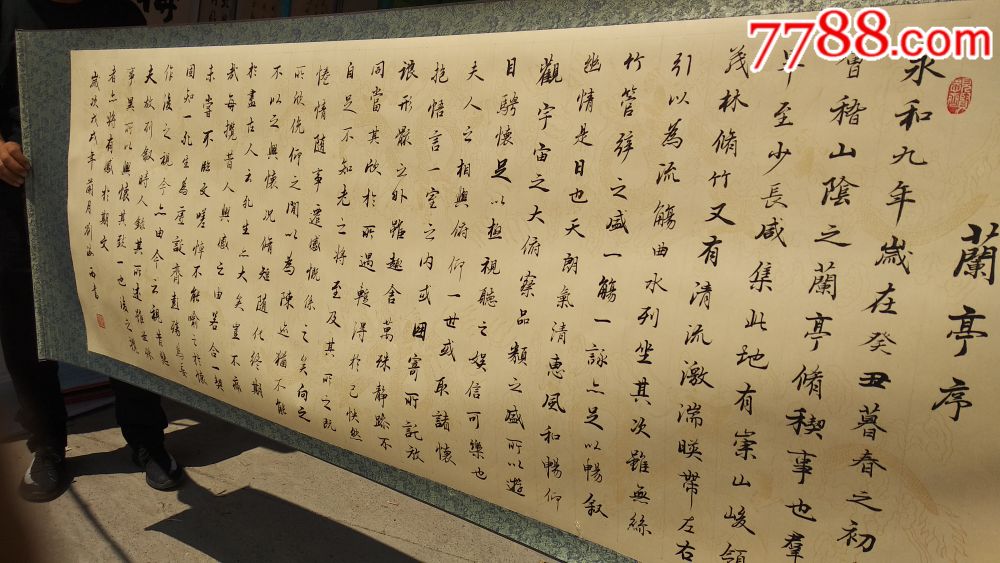 7788.com
蘭亭序
永和九年歲在癸丑暮春之初
會稽山陰之蘭亭脩稧事也羣
畢至少長咸集此地有崇山峻領
茂林脩竹又有清流激湍暎帶左右
引以為流觴曲水列坐其次雖無絲
竹管弦之盛一觴一詠亦足以暢叙
幽情是日也天朗氣清惠風和暢仰
觀宇宙之大俯察品類之盛所以遊
目騁懷足以極視聽之娛信可樂也
夫人之相與俯仰一世或取諸懷
抱悟言一室之内或因寄所託放
浪形骸之外雖趣舍萬殊靜躁不
同當其欣於所遇暫得於己怏然
自足不知老之將至及其所之既
惓情隨事遷感慨係之矣向之
所欣俛仰之間以為陳迹猶不能
不以之興懷况脩短隨化終期
於盡古人云死生亦大矣豈不痛
哉每攬昔人興感之由若合一契
未嘗不臨文嗟悼不能喻之於懷
固知一死生為虛誕齊彭殤為妄
作後之視今亦由今之視昔悲
夫故列叙時人錄其所述雖世殊
事異所以興懷其致一也後之攬
者亦將有感於斯文
歲次戊戌年蘭月劉